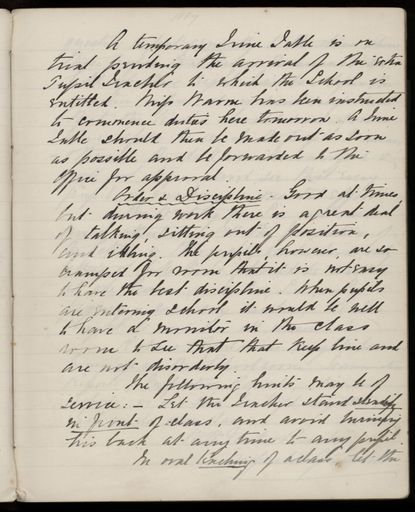 A temporary Time Table is on
trial pending the arrival of the extra
Pupil Teacher to which the School is
entitled. Miss Warne has been instructed
to commence duties here tomorrow. A Time
Table should then be made out as soon
as possible and be forwarded to the
Office for approval
Order & Discipline. Good at times
but during work there is a great deal
of talking, sitting out of position,
and idling. The pupils, however, are so
cramped for room that it is not easy
to have the best discipline. When pupils
are entering school it would be well
to have a monitor in the class
room to see that that keep line and
are not disorderly.
The following hints may be of
service:- Let the Teacher stand steadily
in front of class, and avoid turning
his back at any time to any pupil.
In oral teaching of a class let the